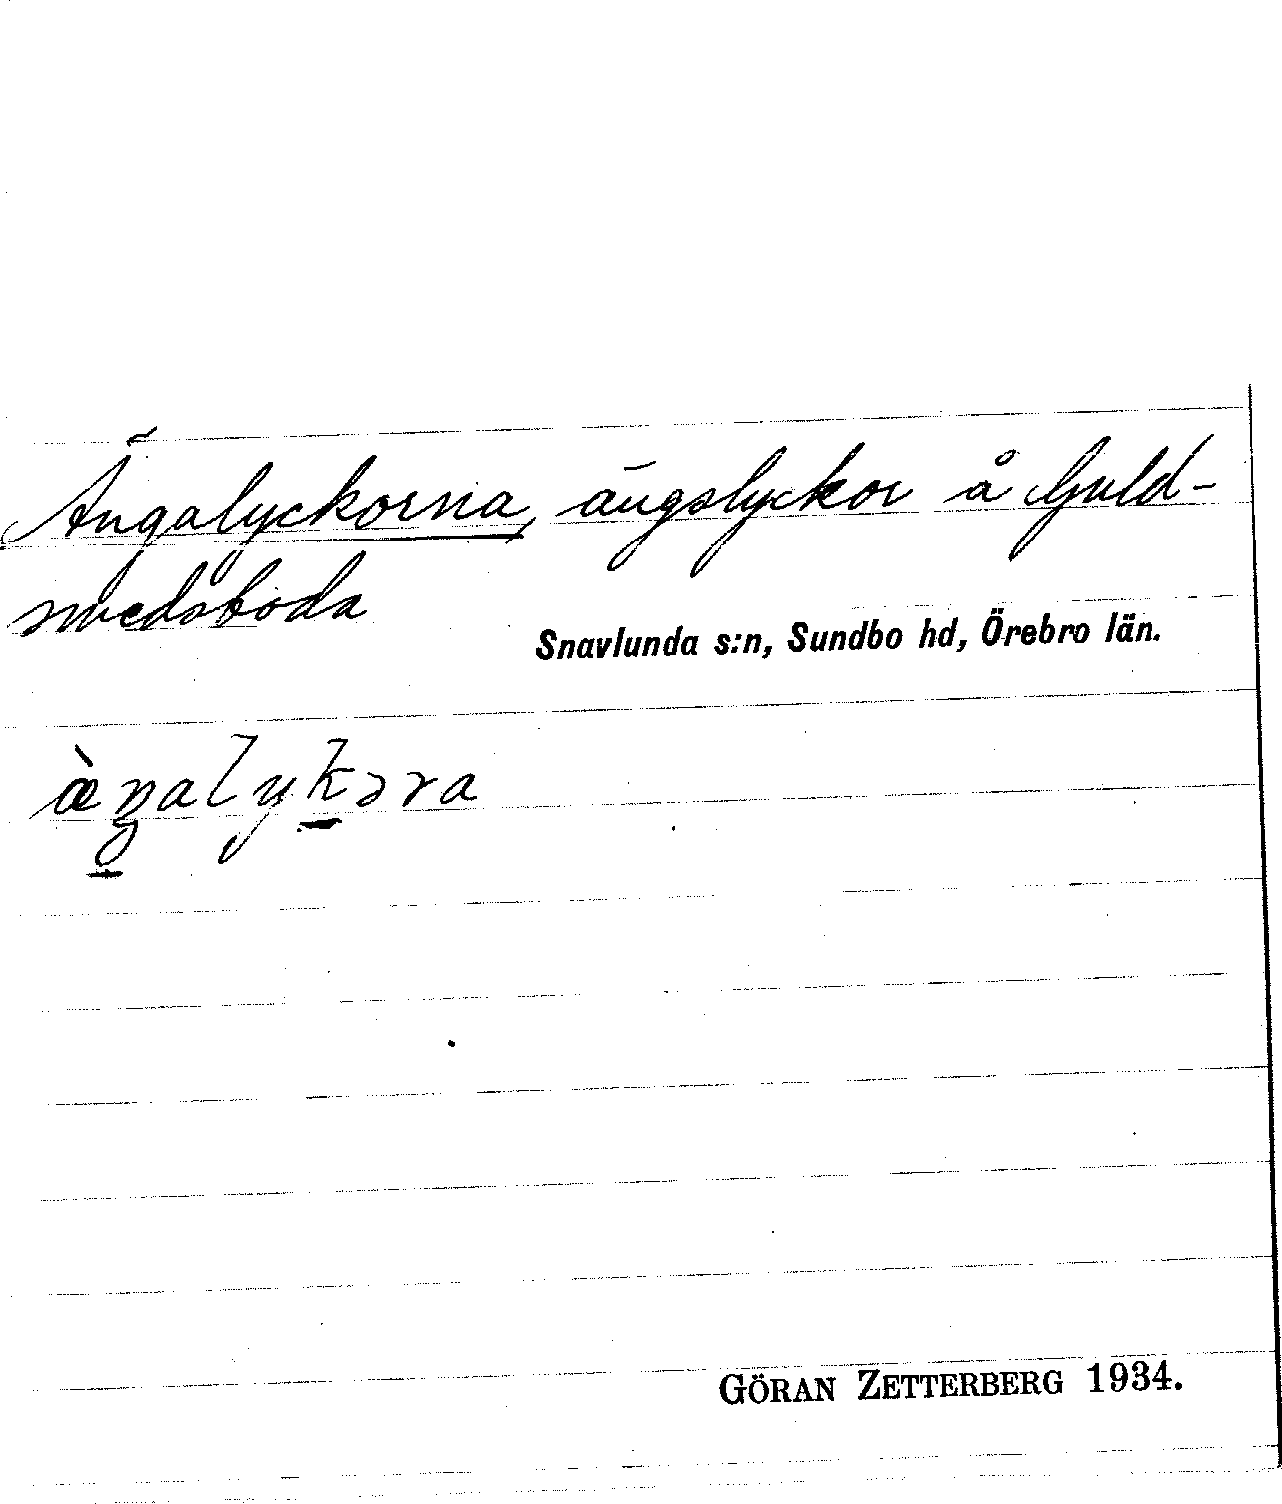 Ängalyckorna, ängslyckor å Guld-
smedsboda
Snavlunda s:n, Sundbo hd, Örebro län.
æ̀ŋalykəra
GÖRAN ZETTERBERG 1934.